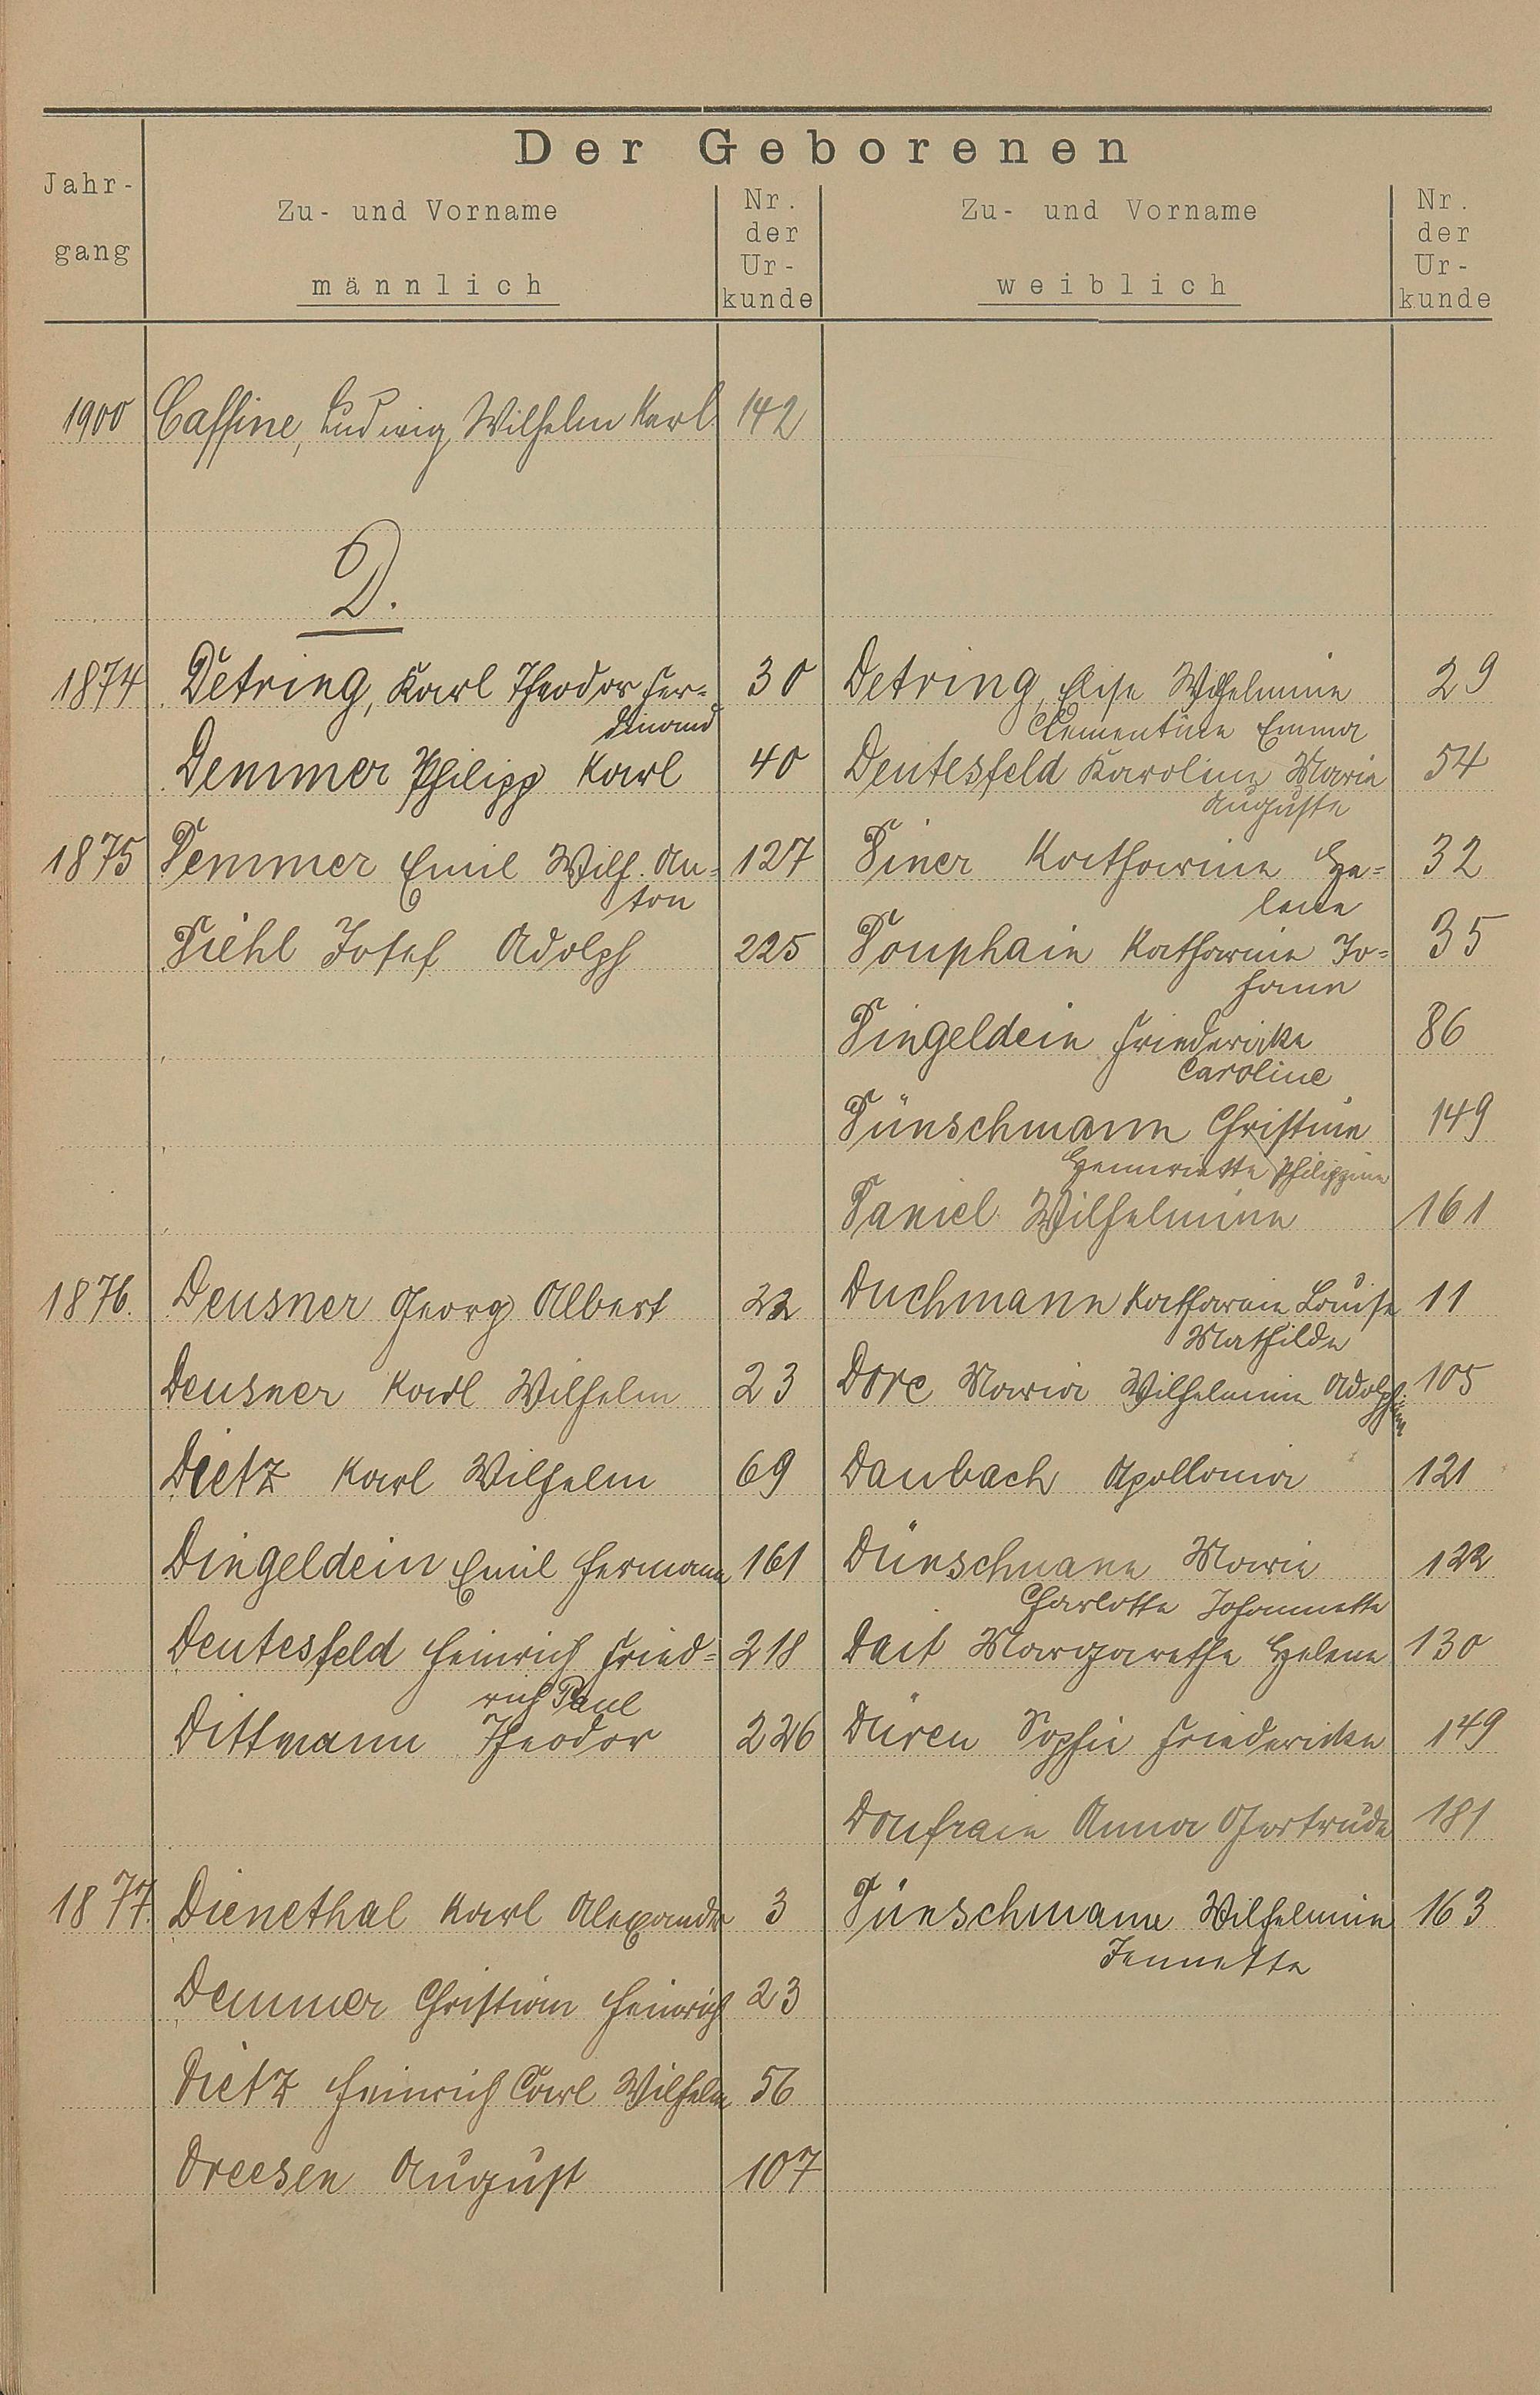 Der Geborenen
Jahr-
gang
Zu- und Vorname
männlich
Nr.
der
Ur-
kunde
Zu- und Vorname
weiblich
Nr.
der
Ur-
kunde
1900 Caffine, Ludwig Wilhelm Karl 142
D.
1874 Detring, Karl Theodor Fer= 30 Detring, Elise Wilhelmine 29
dinand Clementine Emma
Demmer Philipp Karl 40 Deutesfeld Karoline Marie 54
Auguste
1875 Demmer Emil Wilh. An= 127 Diner Katharine He= 32
ton lene
Diehl Josef Adolph 225 Douphain Katharine Jo= 35
hann
Dingeldein Friedericke 86
Caroline
Dünschmann Christine 149
Hennriette Philippine
Daniel Wilhelmine 161
1876. Deusner Georg Albert 22 Duchmann Katharine Louise 11
Mathilde
Deusner Karl Wilhelm 23 Dore Maria Wilhelmine Adolphine 105
Dietz Karl Wilhelm 69 Daubach Apollonia 121
Dingeldein Emil Hermann 161 Dünschmann Marie 122
Charlotte Johannette
Deutesfeld Heinrich Fried= 218 Dait Margarethe Helene 130
rich Paul
Dittmann Theodor 226 Düren Sophie Friedericke 149
Doufrain Anna Gertrude 181
1877. Dienethal Karl Alexander 3 Dünschmann Wilhelmine 163
Jennette
Demmer Christian Heinrich 23
Dietz Heinrich Carl Wilhelm 56
Dreesen August 107